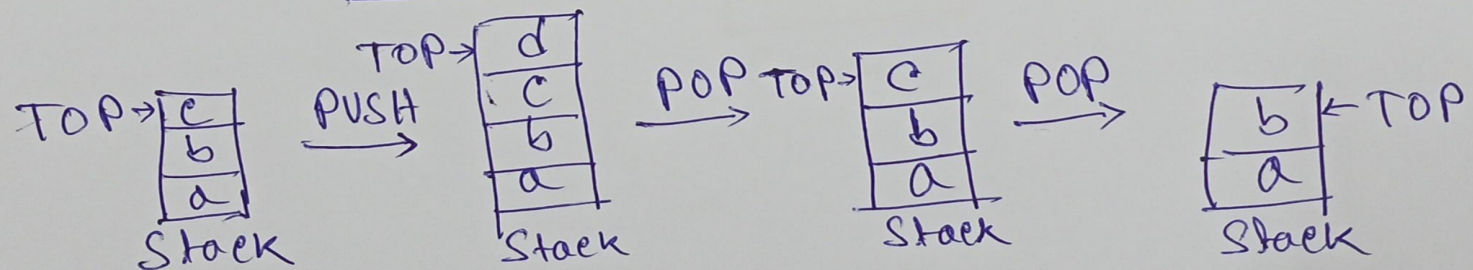 TOP→ c
b
a
Stack
PUSH
TOP→ d
c
b
a
Stack
POP
TOP→ c
b
a
Stack
POP
b ←TOP
a
Stack